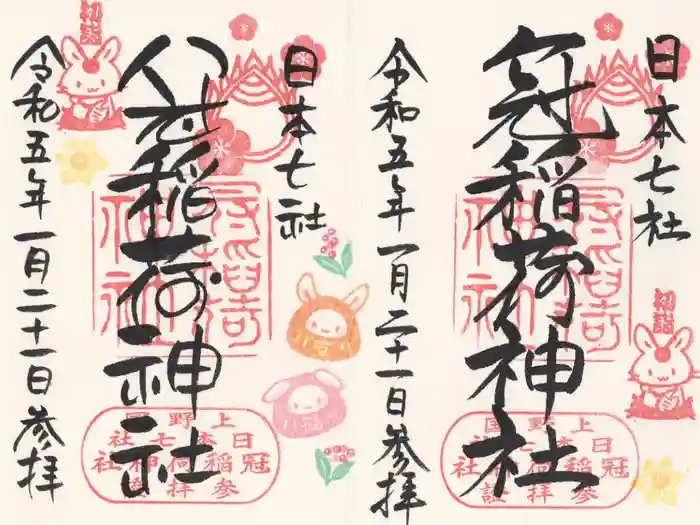 日本七社
初詣
冠稲荷神社
上野国
日本七社
冠稲荷神社
参拝証
令和五年一月二十一日参拝
日本七社
冠稲荷神社
初詣
上野国
日本七社
冠稲荷神社
参拝
令和五年一月二十一日参拝